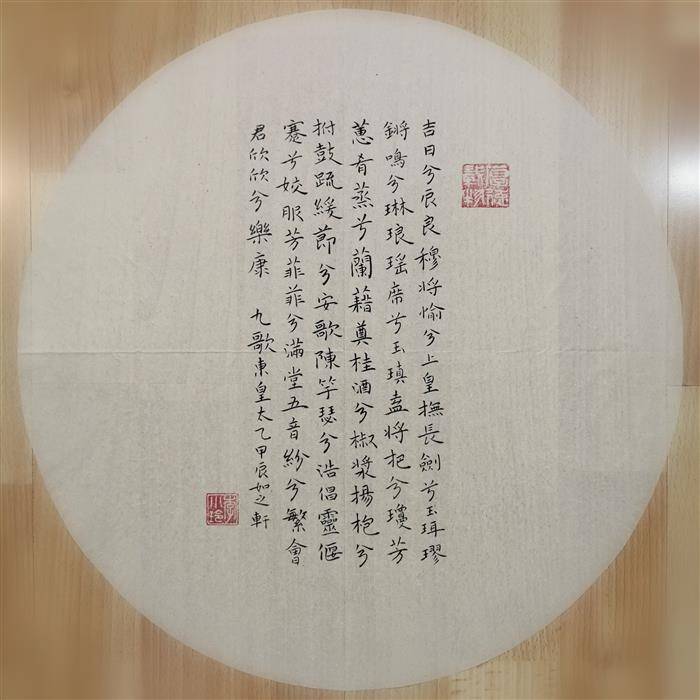 厚德載物
吉日兮辰良穆将愉兮上皇撫長劍兮玉珥璆
鏘鳴兮琳琅瑶席兮玉瑱盍将把兮瓊芳
蕙肴蒸兮蘭藉奠桂酒兮椒漿揚枹兮
拊鼓疏緩節兮安歌陳竽瑟兮浩倡靈偃
蹇兮姣服芳菲菲兮滿堂五音紛兮繁會
君欣欣兮樂康 九歌東皇太乙甲辰如之軒